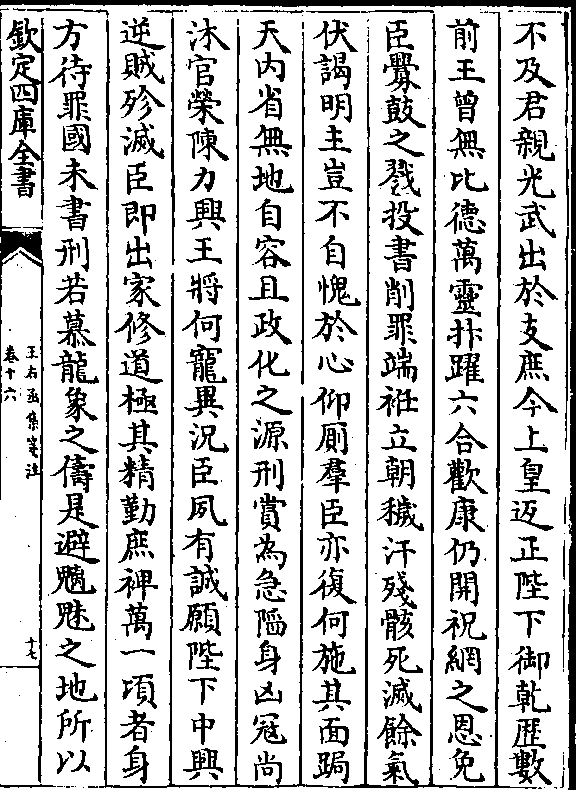 不及君親光武出於支庶今上皇返正陛下御乾歷數
前王曾無比德萬靈抃躍六合歡康仍開祝網之恩免
臣釁鼓之戮投書削罪端衽立朝穢汗殘骸死滅餘氣
伏謁明主豈不自愧於心仰厠羣臣亦復何施其面跼
天内省無地自容且政化之源刑賞為急陷身凶冦尚
沐官榮陳力興王將何寵異況臣夙有誠願陛下中興
逆賊殄滅臣即出家修道極其精勤庶裨萬一頃者身
方待罪國未書刑若慕龍象之儔是避魑魅之地所以
欽定四庫全書
王右丞集箋注
卷十六
十七